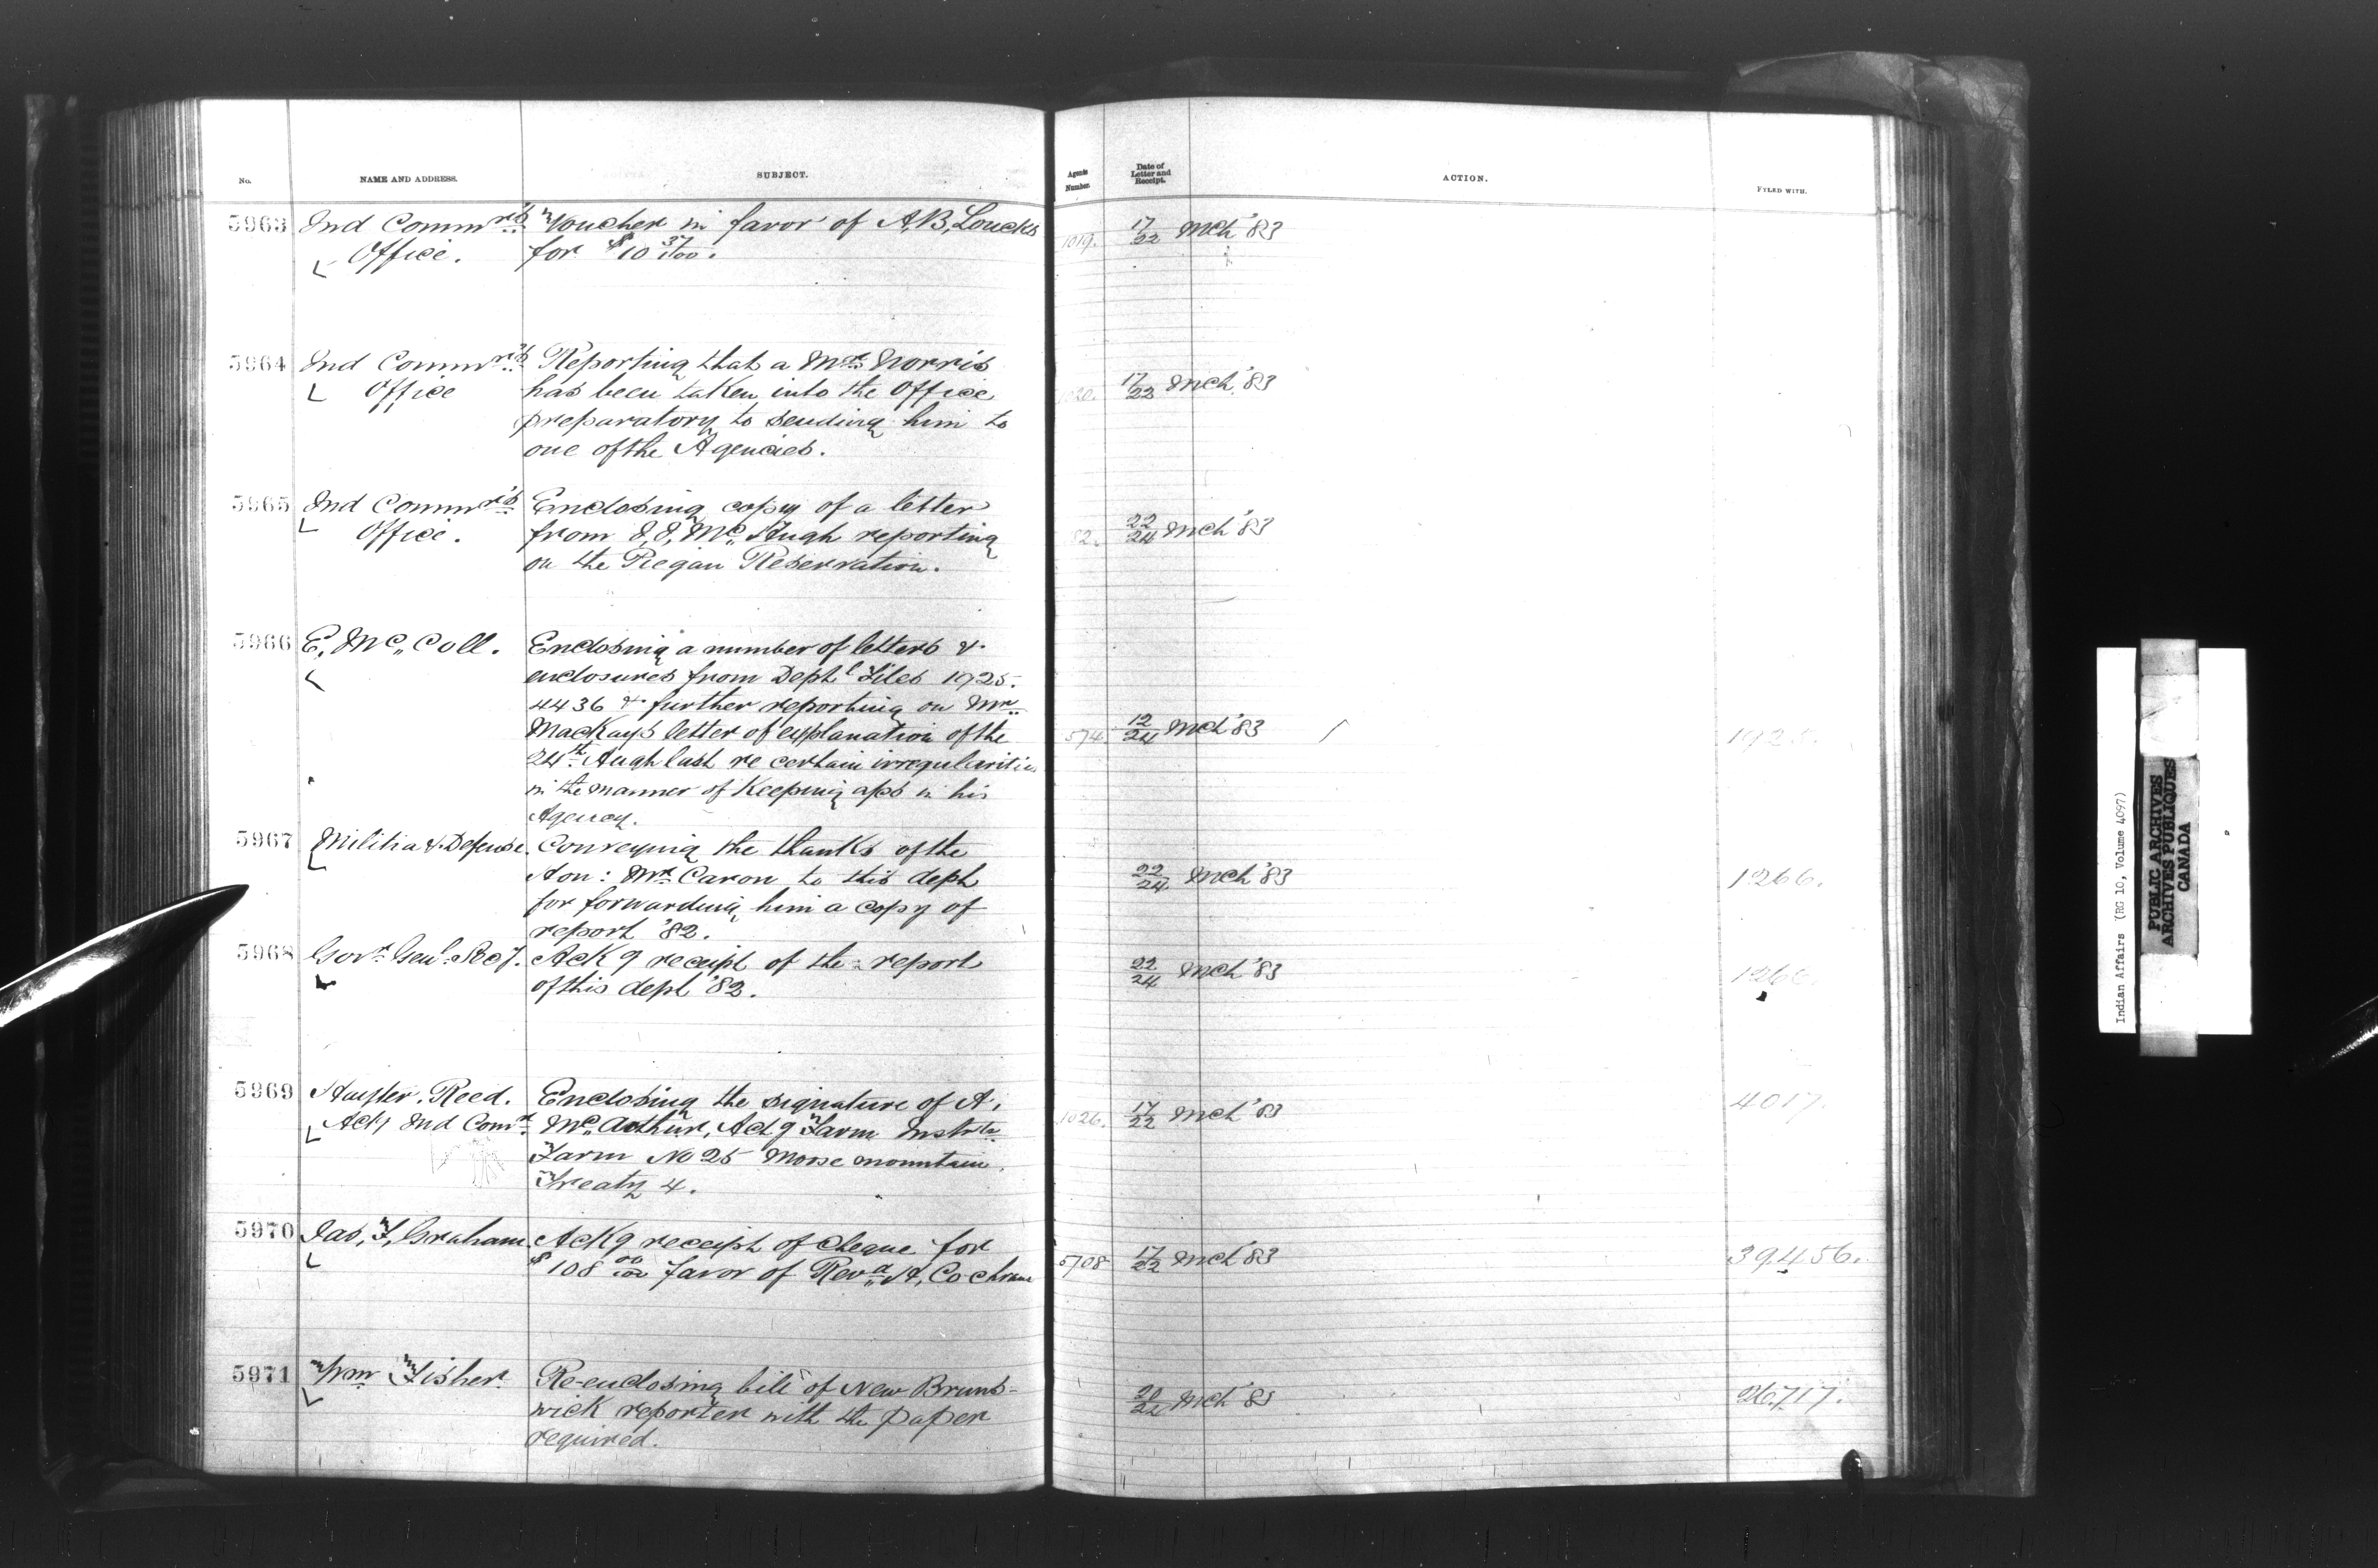 No.
NAME AND ADDRESS.
SUBJECT.
Agents Number.
Date of Letter and Receipt.
ACTION.
FYLED WITH.
5963
Ind Commr's
Office.
Voucher in favor of A,B, Loucks
for $10 37/100.
1019.
17/22 Mch '83
5964
Ind Commr's
Office
Reporting that a Mr. Norris
has been taken into the Office
preparatory to sending him to
one of the Agencies.
1020.
17/22 Mch '83
5965
Ind Commr's
Office.
Enclosing copy of a letter
from J, J, Mc Hugh reporting
on the Piegan Reservation.
82.
22/24 Mch '83
5966
E, Mc Coll.
Enclosing a number of letters &
enclosures from Deptl Files 1925.
4436 & further reporting on Mr.
MacKays letter of explanation of the
24th last re certain irregularities
in the manner of Keeping in his
Agency.
574
12/24 Mch '83
1925.
5967
Militia & Defense.
Conveying the thanks of the
Hon: Mr. Caron to this dept
for forwarding him a copy of
report '82.
22/24 Mch '83
1266.
5968
Govr Genl Secy.
Ackg receipt of the report
of this dept '82.
22/24 Mch '83
1266.
5969
Hayter. Reed.
Actg Ind Comr.
Enclosing the signature of A,
Mc Arthur, Actg Farm Instr
Farm No 25 Moose mountain,
Treaty 4.
1026.
17/22 Mch '83
4017.
5970
Jas, F, Graham
Ackg receipt of cheque for
$108 00/100 favor of Revd H, Cochrane
5708
17/22 Mch '83
39,456.
5971
Wm Fisher
Re-enclosing bill of New Bruns-
wick reporter with the paper
required.
20/22 Mch '83
26717.
Indian Affairs (RG 10, Volume 4097)
PUBLIC ARCHIVES
ARCHIVES PUBLIQUES
CANADA